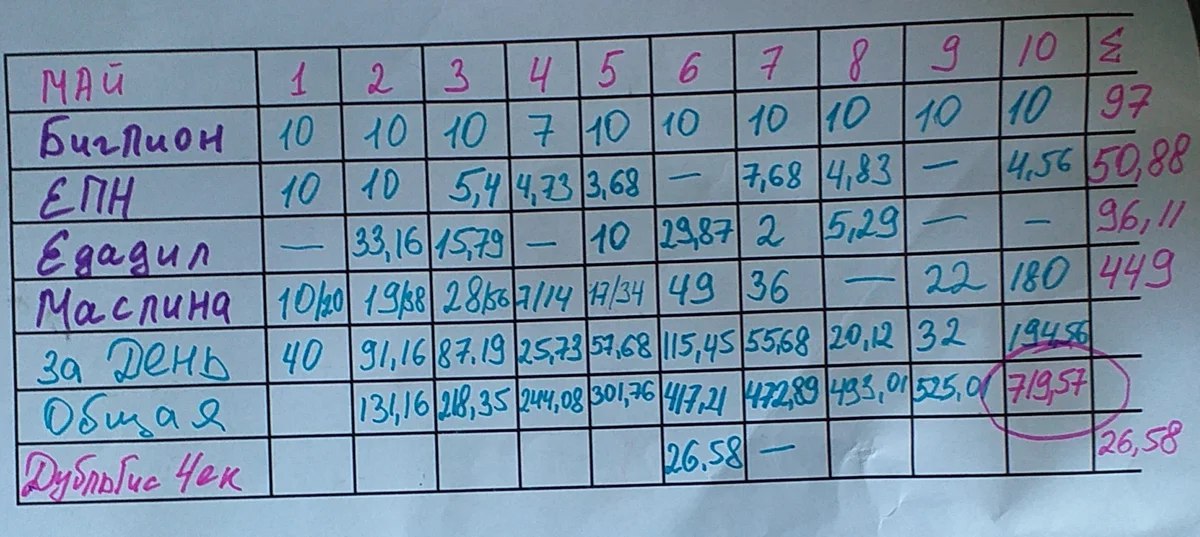 МАЙ 1 2 3 4 5 6 7 8 9 10 Σ
Биглион 10 10 10 7 10 10 10 10 10 10 97
ЕПН 10 10 5,4 4,73 3,68 — 7,68 4,83 — 4,56 50,88
Едадил — 33,16 15,79 — 10 29,87 2 5,29 — — 96,11
Маслина 10/20 19/38 28/56 7/14 17/34 49 36 — 22 180 449
за День 40 91,16 87.19 25,73 57,68 115,45 55,68 20,12 32 194,56
Общая 131,16 218,35 244,08 301,76 417,21 472,89 493,01 525,01 719,57
ДубльГис Чек 26,58 — 26,58